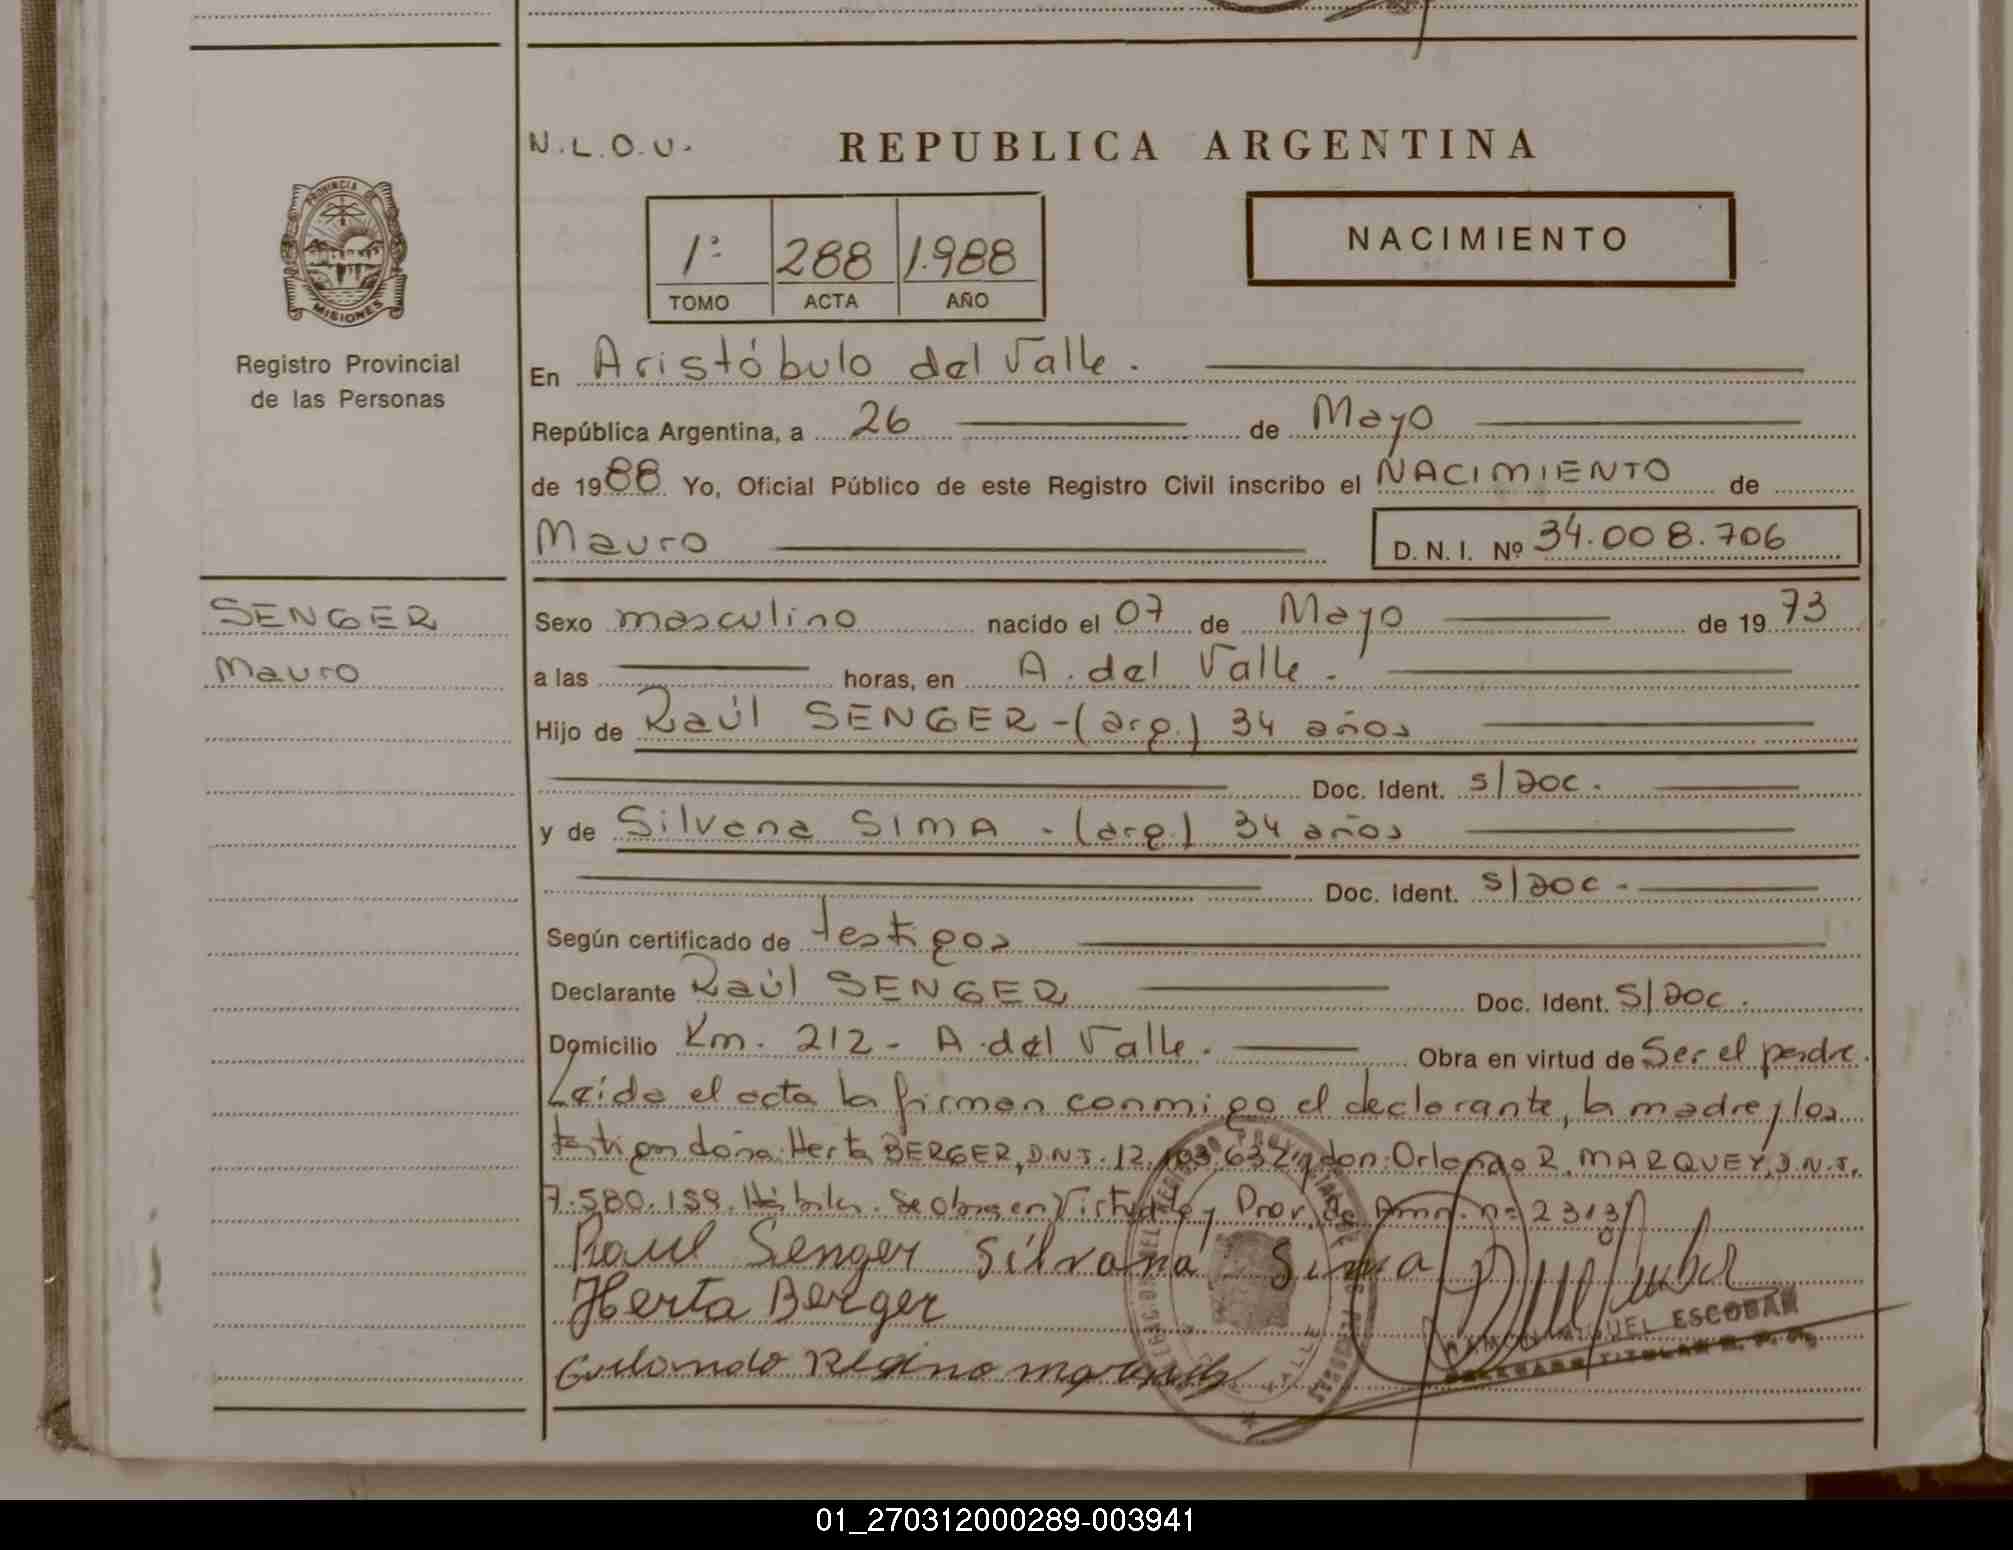 N.L.O.U. REPUBLICA ARGENTINA
PROVINCIA DE MISIONES
1º 288 1.988
TOMO ACTA AÑO
NACIMIENTO
Registro Provincial
de las Personas
En Aristóbulo del Valle.
República Argentina, a 26 de Mayo
de 1988 Yo, Oficial Público de este Registro Civil inscribo el NACIMIENTO de
Mauro D.N.I. Nº 34.008.706
SENGER
Mauro
Sexo masculino nacido el 07 de Mayo de 1973
a las horas, en A. del Valle.
Hijo de Raúl SENGER-(arg.) 34 años
Doc. Ident. s/doc.
y de Silvana SIMA-(arg.) 34 años
Doc. Ident. s/doc.-
Según certificado de testigos
Declarante Raúl SENGER Doc. Ident. s/doc.
Domicilio Km. 212- A. del Valle. Obra en virtud de Ser el padre.
Leída el acta la firman conmigo el declarante, la madre y los
testigos doña: Herta BERGER, D.N.I. 12. .632 y don: Orlando R. MARQUEZ, D.N.I.
7.580.159. Hábiles. Se obra en Virtud de Prov. de Amn. nº 2313/
Raul Senger Silvana Sima
Herta Berger
Orlando Regino
RAMON MIGUEL ESCOBAR
DELEGADO TITULAR
01_270312000289-003941